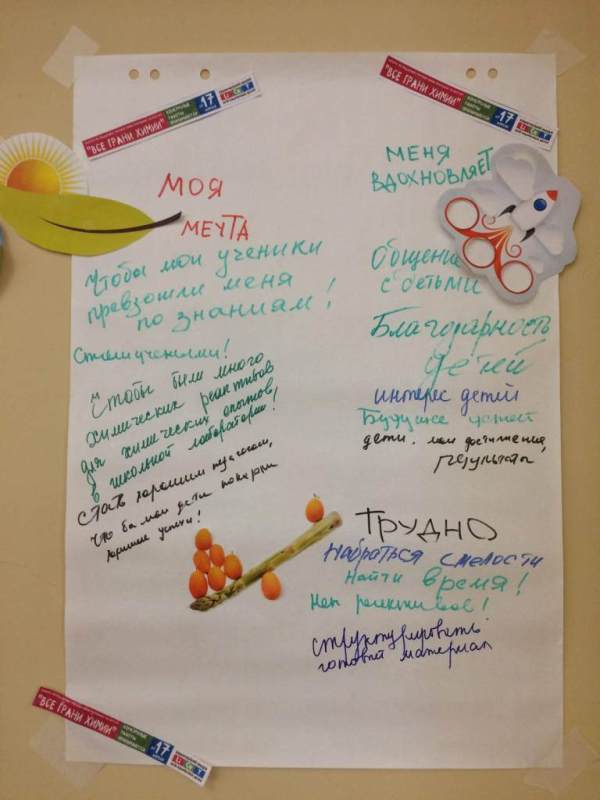 "ВСЕ ГРАНИ ХИМИИ"
17
"ВСЕ ГРАНИ ХИМИИ"
17
МОЯ
МЕЧТА
Чтобы мои ученики
превзошли меня
по знаниям!
Стали учеными!
Чтобы были много
химических реактивов
для химических опытов,
в школьной лаборатории!
Стать хорошим
что бы мои дети
успехи!
МЕНЯ
ВДОХНОВЛЯЕТ
Общение
с детьми
Благодарность
детей
интерес детей
Будущее
дети. мои достижения,
результаты
ТРУДНО
Набраться смелости
Найти время!
Нет реактивов!
структурировать
готовый материал
"ВСЕ ГРАНИ ХИМИИ"
17